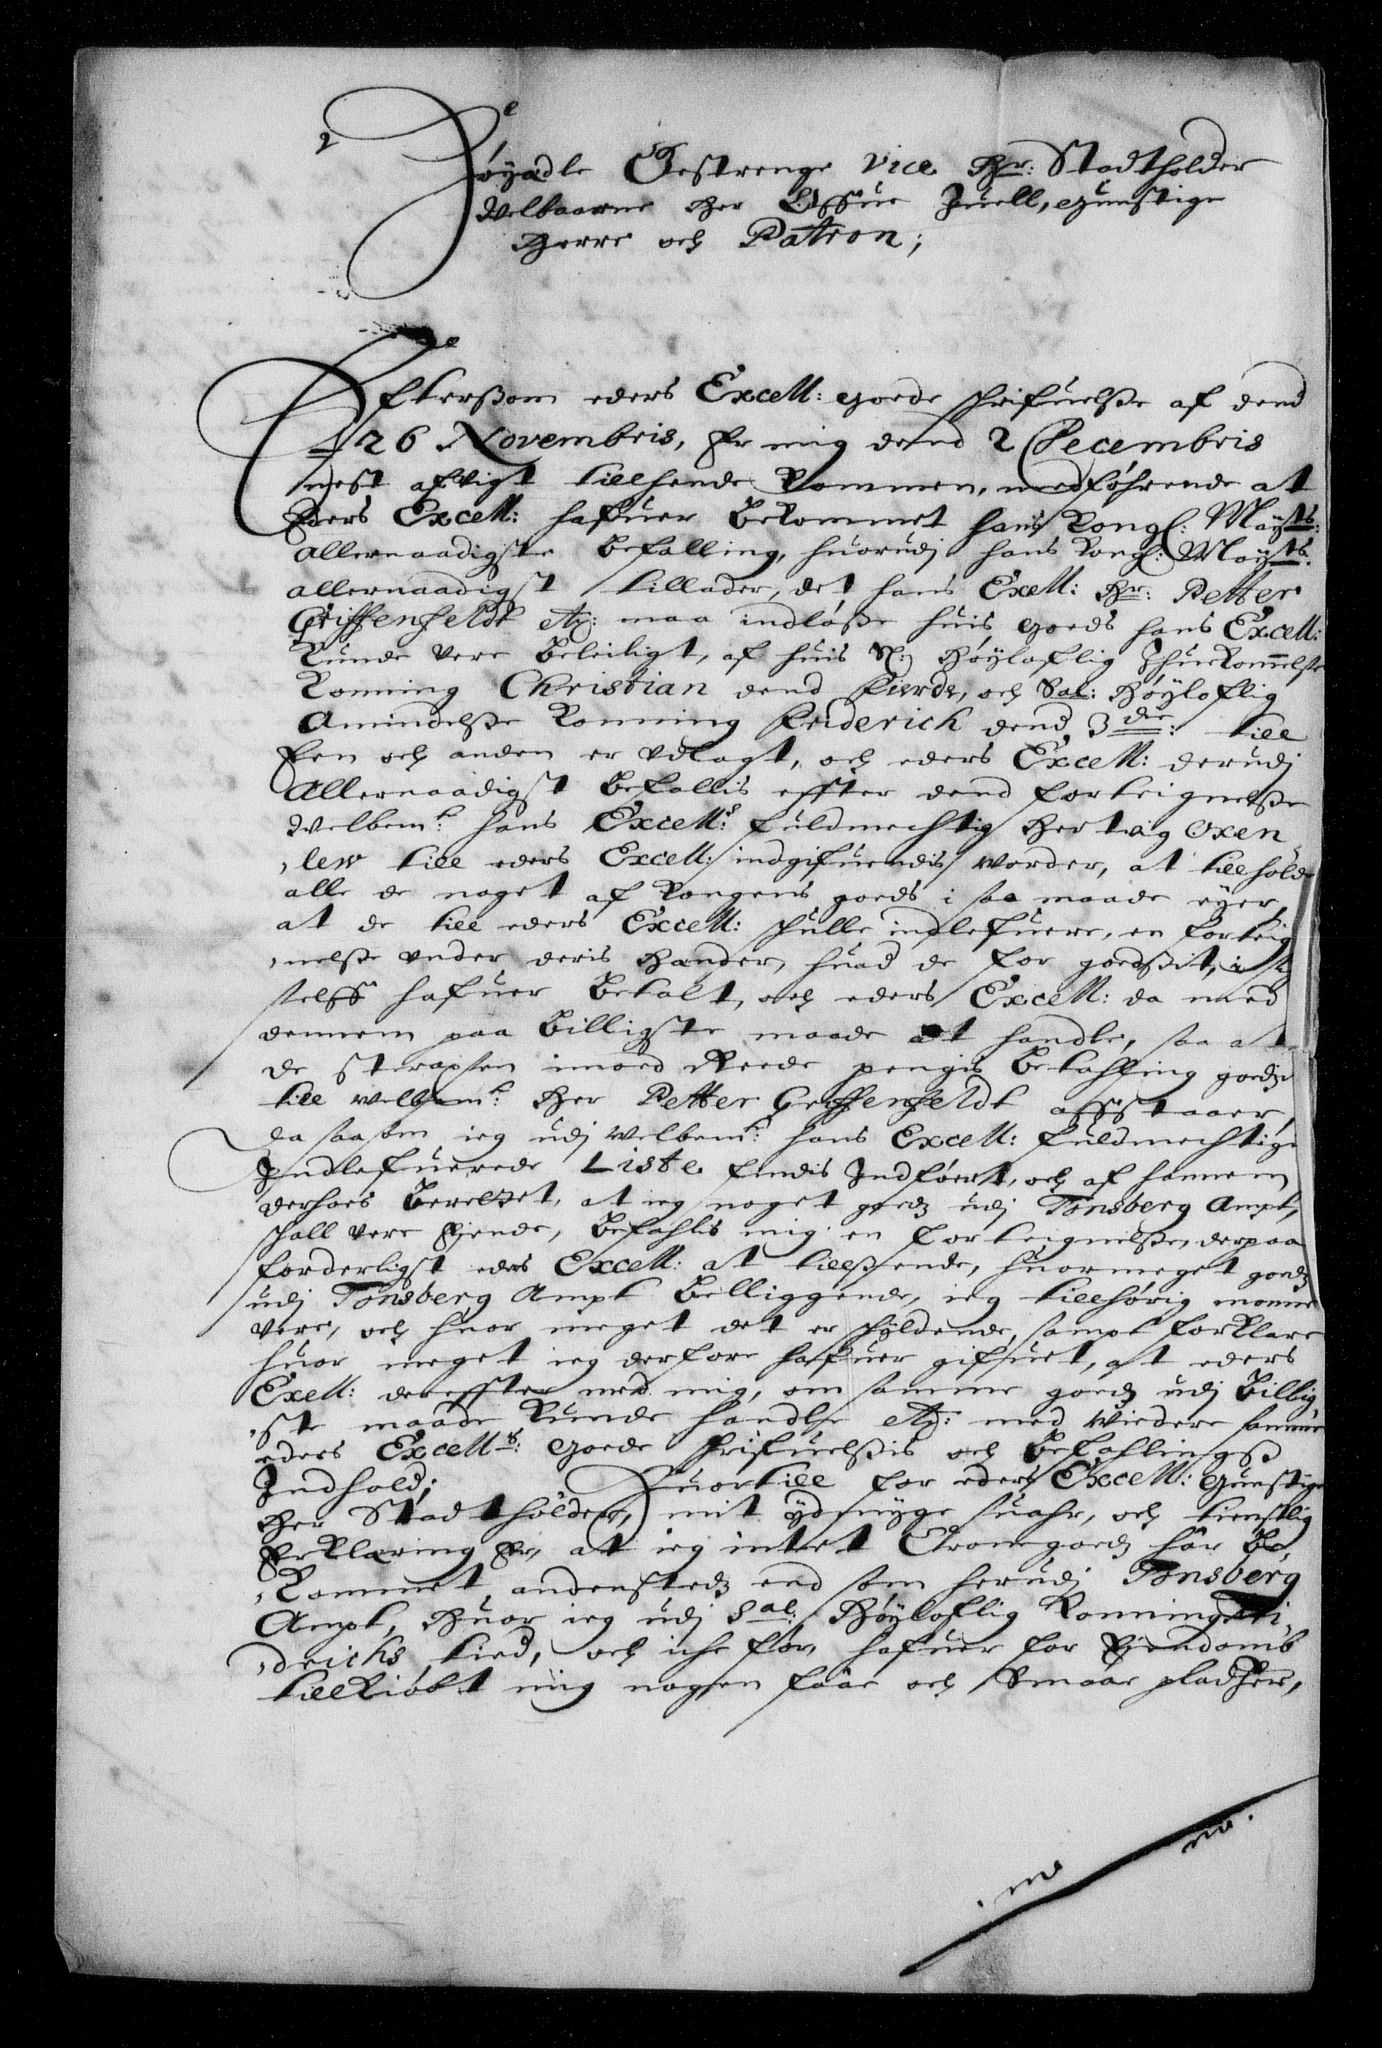 Høyædle Gestrenge Vice Hr: Stadtholder
Velbaarne Her Offue Juell, gunstige
Herre och Patron;
Efftersom eders Excell: goede schrifuelsse af dend
26 Novembris, Er mig dend 2 Decembris
nest afvigt tillhende Kommen, medføhrende at
Eders Excell: hafuer bekommet hans Kongl: Mayts:
allernaadigste befalling, huorudj hans Kongl: Mayts.
allernaadigst tillader, det hans Exell: Hr: Petter
Griffenfeldt etc: maa indløsse huis goeds hans Excell:
Kunde vere beleiligt, af huis S: Høyloflig Ihuekommelse
Konning Christian dend Fierde, och Sal: Høyloflig
Amindelsse Konning Friderich dend 3die: till
Een och anden er udlagt, och eders Excell: derudj
Allernaadigst befallis effter dend forteignelsse
Velbemt: hans Excells: fuldmechtig Hertvig Oxen
,lew till eders Excell: indgifuendis vorder, at tillholde
alle de noget af Kongens goeds i saa maade eyer,
at de till eders Excell: schulle indlefuere, en forteig
,nelsse under deris Hænder, huad de for goedsit,
hafuer betalt, och eders Excell: da med
dennem paa billigste maade at handle, saa at
de straxsen imod Reede pengis betahling goedz
till velbemt: Her Petter Griffenfeldt affstaaer,
da saasom ieg udj velbemt: hans Excell: fuldmechtige
Indlefuerede Liste findis Indført, och af hannem
derhoes berettet, at ieg noget goedz udj Tønsberg Ampt,
schall vere Eyende, befahlis mig en forteignelsse, derpaa
forderligst eders Excell: at tillsende, huormeget goedz
udj Tønsberg Ampt belliggende, ieg tillhørig monne
vere, och huor meget det er schyldende, sampt forklare
huor meget ieg derfore hafuer gifuet, at eders
Exell: dereffter med mig, om samme goedz udj billig
,ste maade kunde handle etc: med Videre samme
eders Excells: goede schrifuelssis och befahlings
Indhold; Huortill for eders Excell: gunstige
Her Stadtholder, mit ydmyge suahr, och tienstlig
Erklæring Er, at ieg intet Cronegoedz har be
,kommet andenstedz end som herudj Tønsberg
Ampt, Huor ieg udj Sal: Høyloflig Konning Fri
,derichs tied, och iche før, hafuer for Eyendomb
tillkiøbt mig nogen faae och Smaae pladtzer,